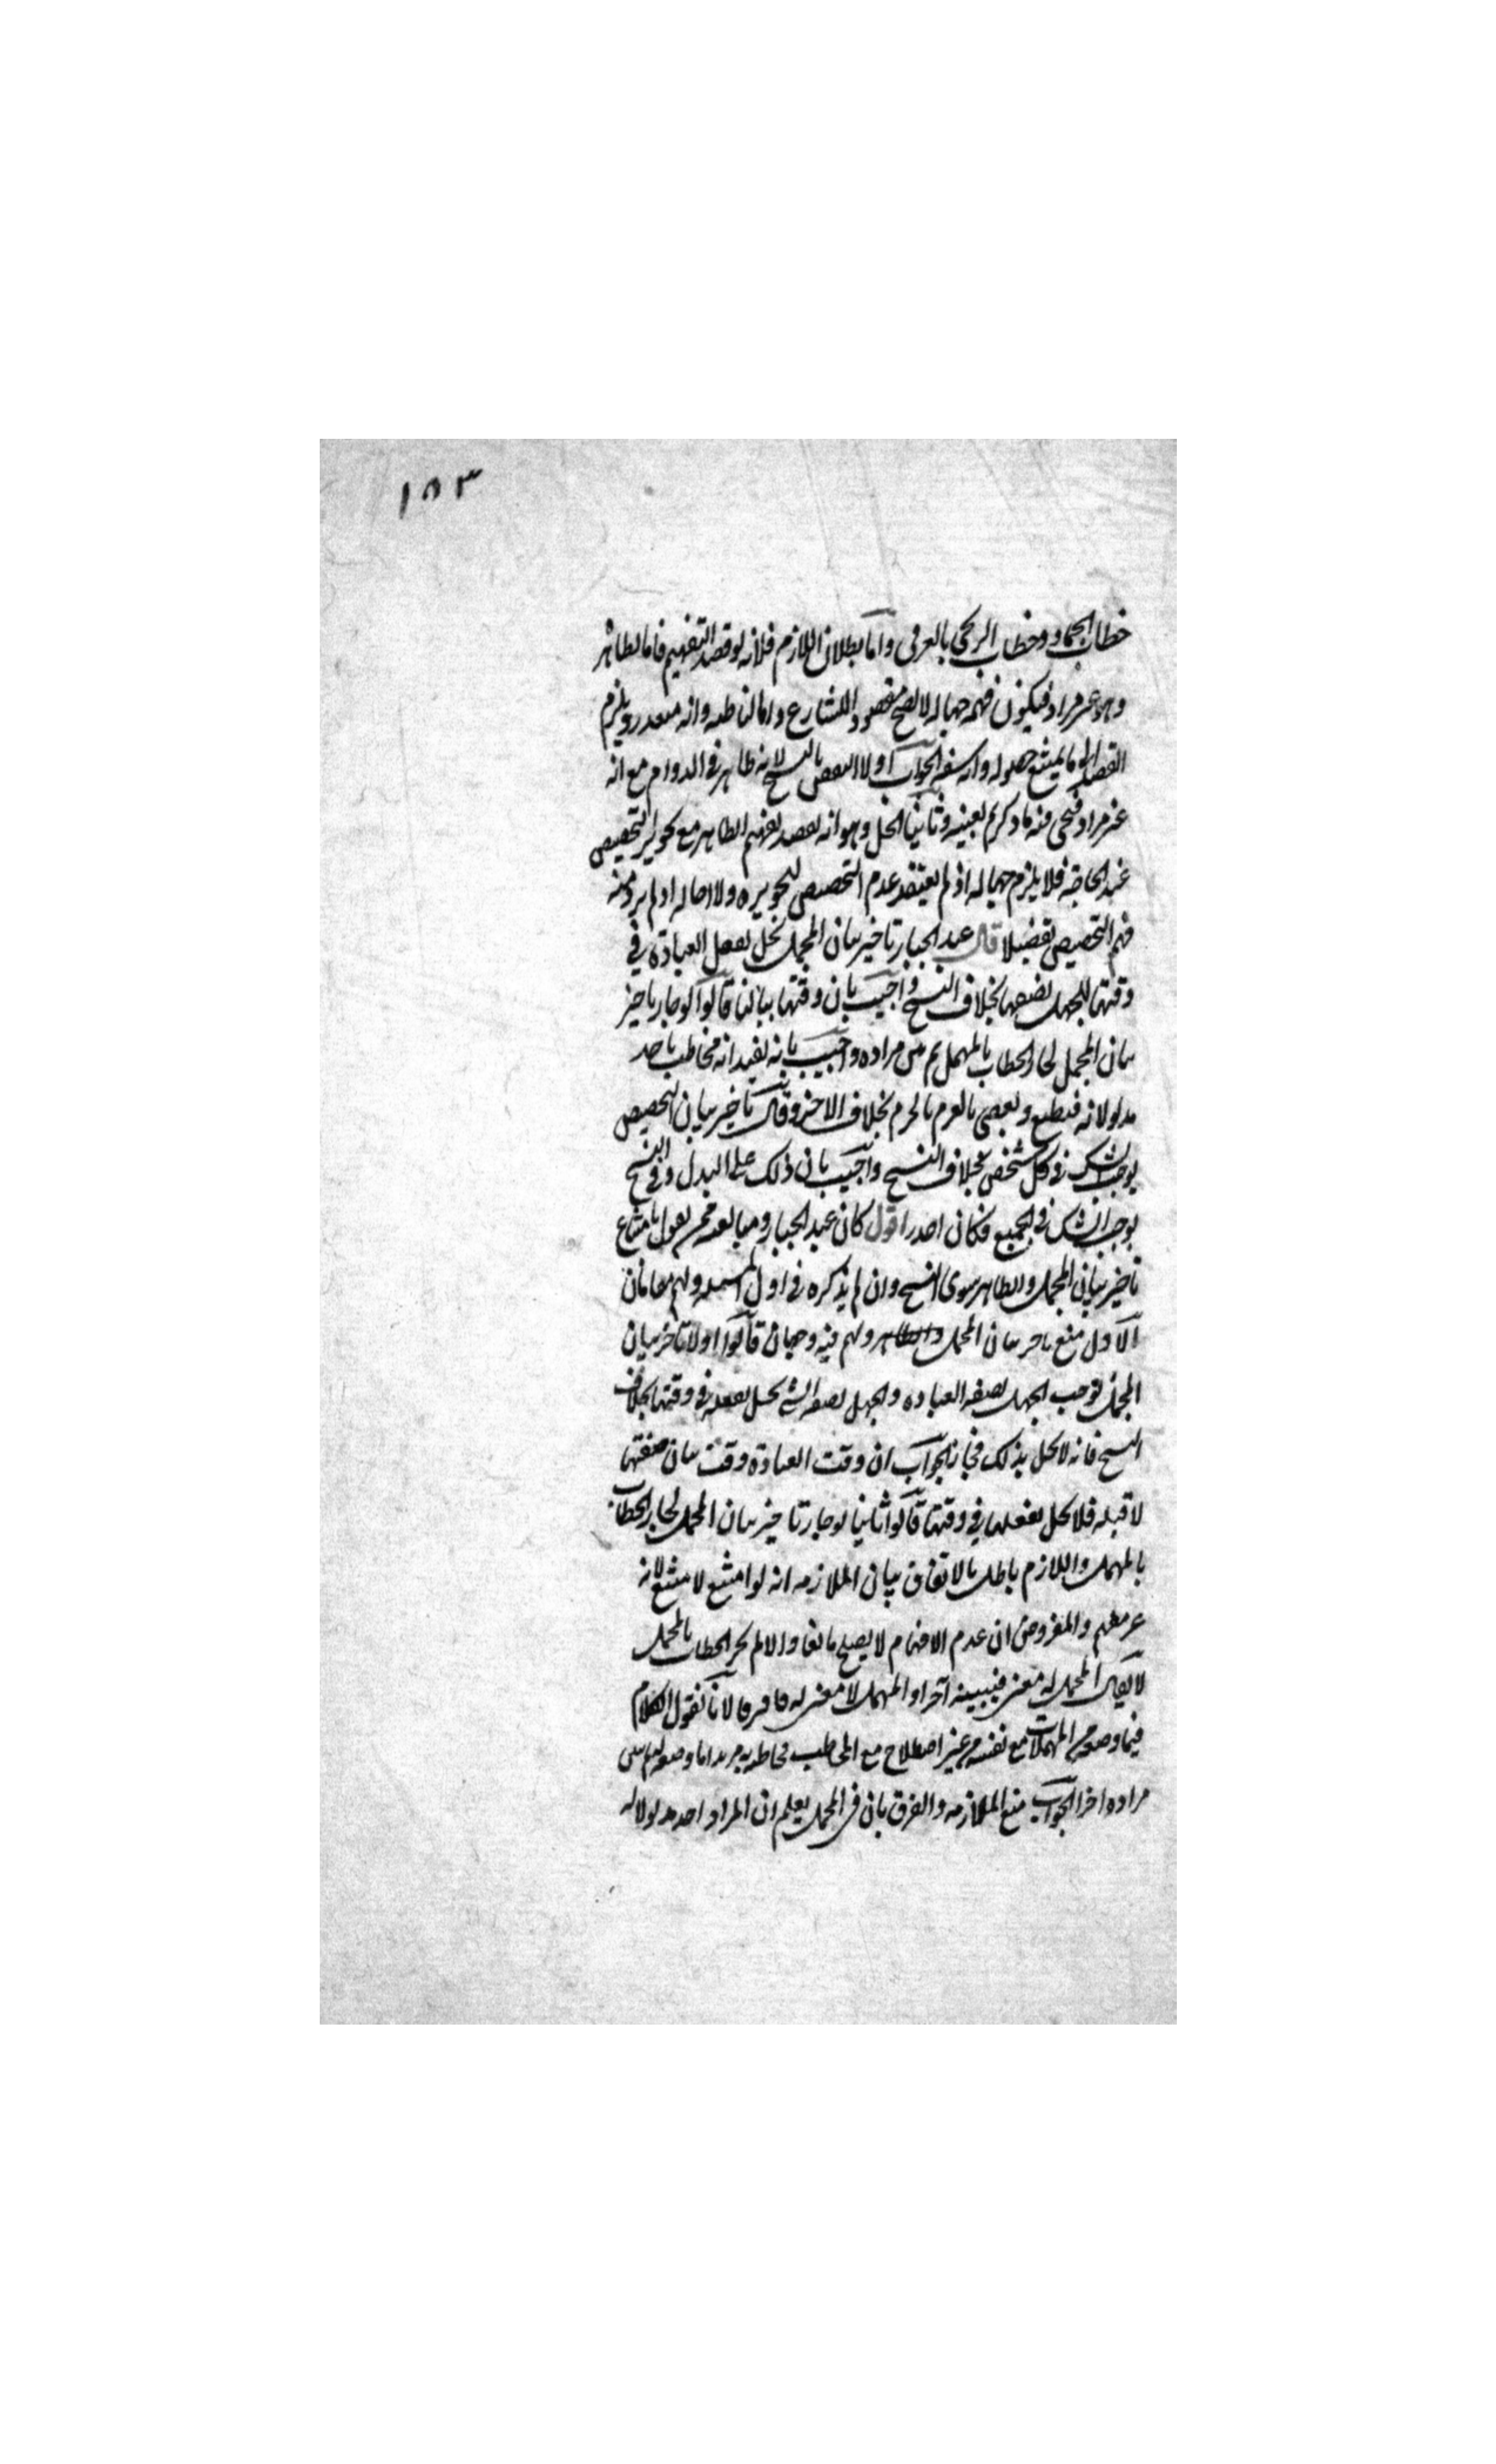 ١٥٣
خطاب الجماد وخطاب الزنجي بالعربي واما بطلان اللازم فلانه لو قصد التفهيم فاما لظاهر
وهو غير مراد فيكون فهمه جهالة لا يصح مقصودا للشارع واما لباطنه وانه متعذر ويلزم
القصد الى ما يمتنع حصوله وانه سفه الجواب اولا النقض بالنسخ لانه ظاهر في الدوام مع انه
غير مراد فيجي فيه ما ذكرتم بعينه وثانيا الحل وهو انه يقصد تفهيم الظاهر مع تجويز التخصيص
عند الحاجة فلا يلزم جهالة اذ لم يعتقد عدم التخصيص لتجويزه ولا احالة اذ لم يرد منه
فهم التخصيص تفصيلا قال عبد الجبار تاخير بيان المجمل يخل بفعل العبادة في
وقتها للجهل بصفتها بخلاف النسخ واجيب بان وقتها بيانها قالوا لو جاز تاخير
بيان المجمل لجاز الخطاب بالمهمل ثم يبين مراده واجيب بانه يفيد انه مخاطب باحد
مدلولاته فيطيع ويعصي بالعزم بالحزم بخلاف الاخر وقال تاخير بيان التخصيص
يوجب الشك في كل شخص بخلاف النسخ واجيب بان ذلك على البدل وفي النسخ
يوجب الشك في الجميع فكان اجدر اقول كان عبد الجبار ومتابعوه ممن يقول بامتناع
تاخير بيان المجمل والظاهر سوى النسخ وان لم يذكره في اول المسئلة ولهم مقامان
الاول منع تاخير بيان المجمل ولهم فيه وجهان قالوا اولا تاخير بيان
المجمل يوجب الجهل بصفة العبادة والجهل بصفة الشي يخل بفعله في وقتها بخلاف
النسخ فانه لا يخل بذلك فجاز الجواب ان وقت العبادة وقت بيان صفتها
لا قبله فلا يخل بفعلها في وقتها قالوا ثانيا لو جاز تاخير بيان المجمل لجاز الخطاب
بالمهمل واللازم باطل بالاتفاق بيان الملازمة انه لو امتنع لامتنع لانه
غير مفهم والمفروض ان عدم الافهام لا يصلح مانعا والا لم يجز الخطاب بالمجمل
لا يقال المجمل له معنى فيبينه آخرا والمهمل لا معنى له فافترقا لانا نقول الكلام
فيما وضعه من المهملات مع نفسه من غير اصطلاح مع المخاطب فخاطبه به مريدا ما وضعه له ثم يبين
مراده اخرا الجواب منع الملازمة والفرق بان في المجمل يعلم ان المراد احد مدلولاته